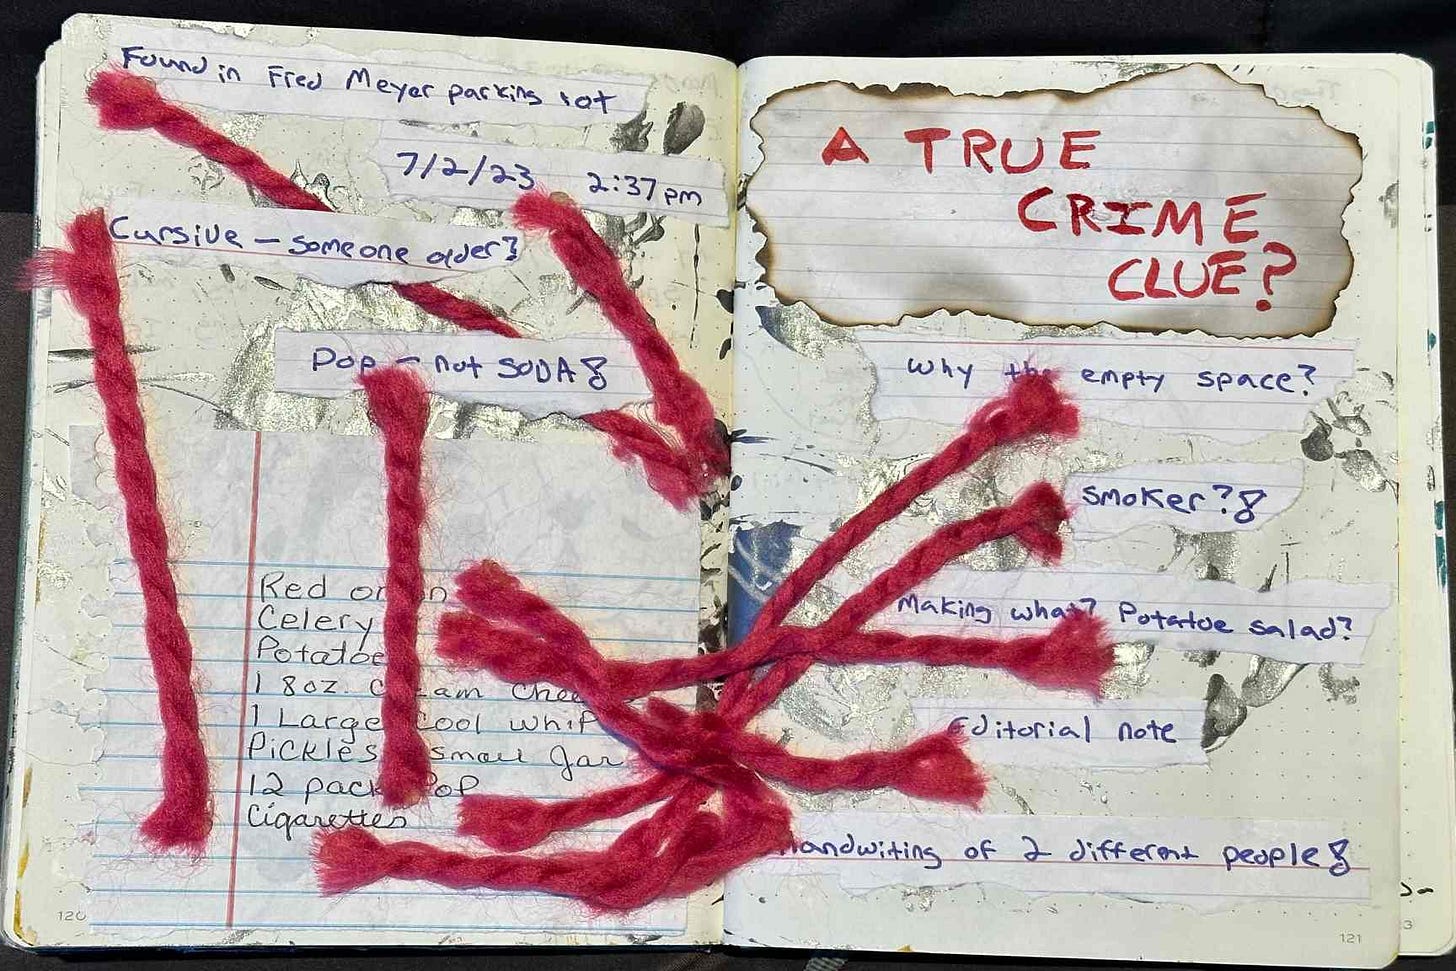 Found in Fred Meyer parking lot
7/2/23 2:37pm
Cursive – someone older?
Pop – not SODA!
Red on
Celery
Potatoe
1 8oz. Cream Chee
1 Large Cool Whip
Pickles small Jar
12 pack Pop
Cigarettes
120
A TRUE
CRIME
CLUE?
Why the empty space?
Smoker?!
Making what? Potatoe salad?
Editorial note
Handwiting of 2 different people!
121